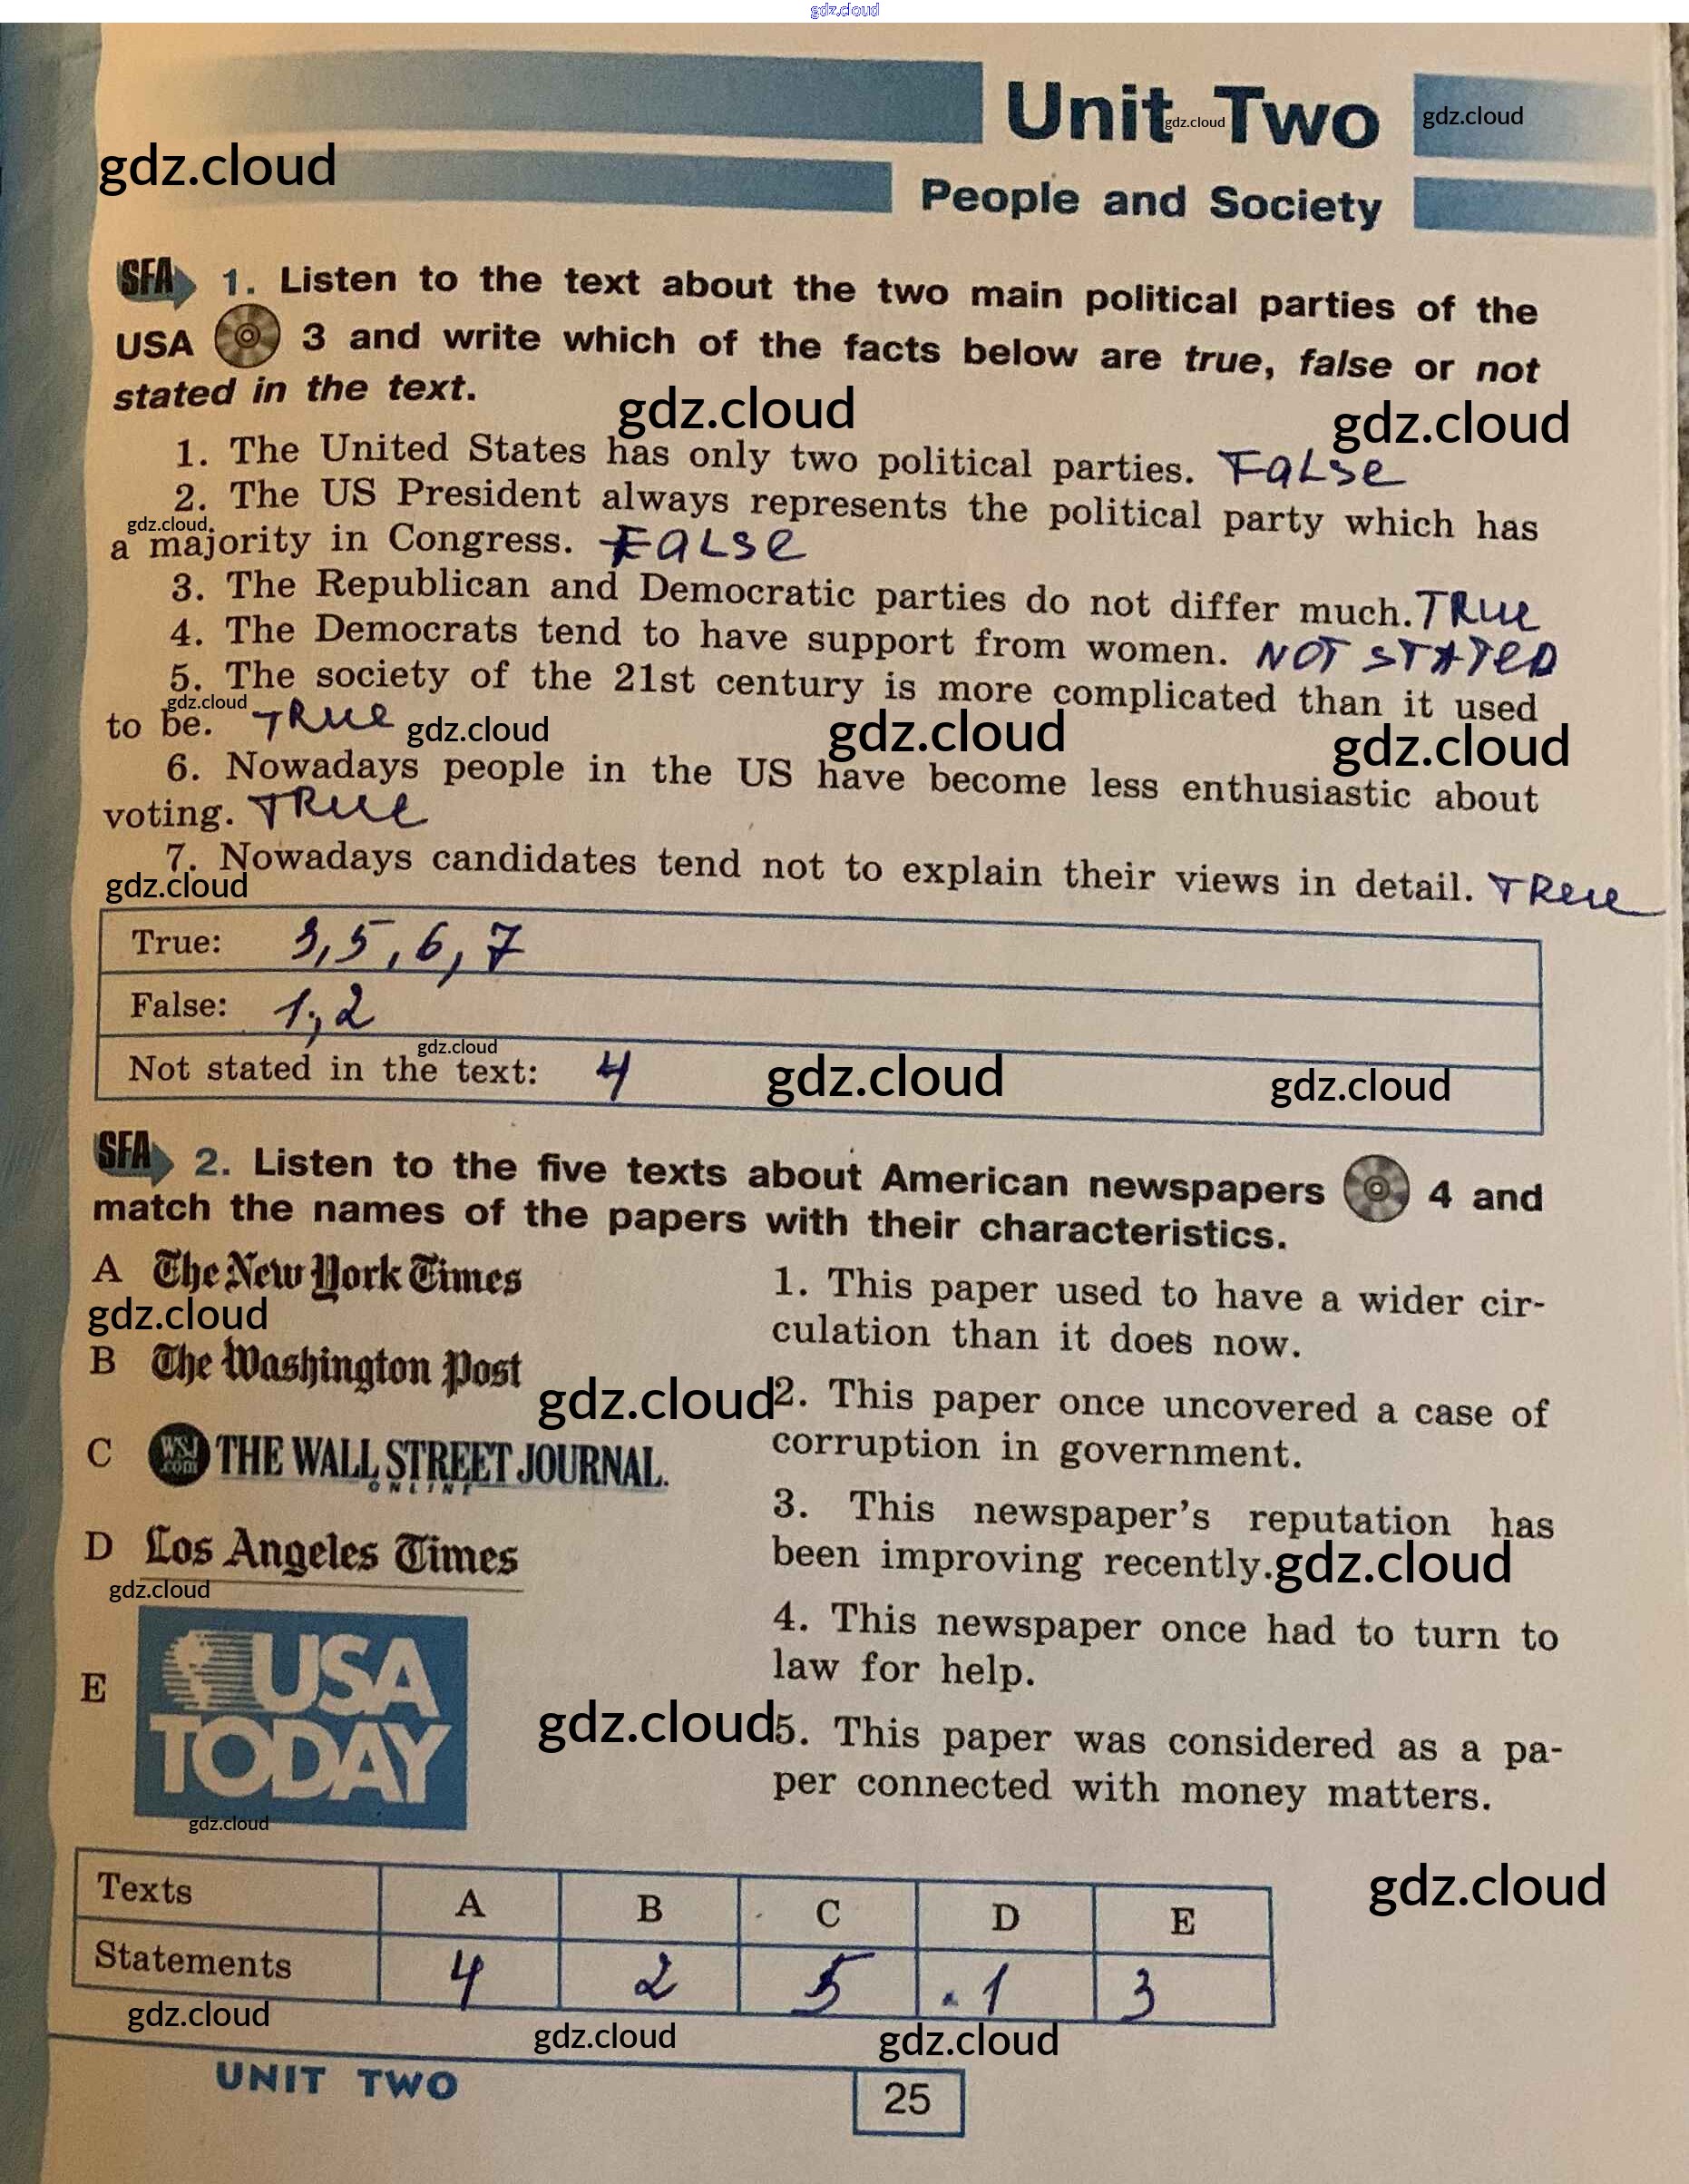 gdz.cloud
Unit Two
gdz.cloud
gdz.cloud
gdz.cloud
People and Society
SFA 1. Listen to the text about the two main political parties of the
USA 3 and write which of the facts below are true, false or not
stated in the text.
gdz.cloud
gdz.cloud
1. The United States has only two political parties. FaLse
2. The US President always represents the political party which has
gdz.cloud
a majority in Congress. FaLse
3. The Republican and Democratic parties do not differ much. TRue
4. The Democrats tend to have support from women. NOT STATeD
5. The society of the 21st century is more complicated than it used
gdz.cloud
to be. TRue
gdz.cloud
gdz.cloud
gdz.cloud
6. Nowadays people in the US have become less enthusiastic about
voting. TRue
7. Nowadays candidates tend not to explain their views in detail. TRue
gdz.cloud
True: 3,5,6,7
False: 1,2
gdz.cloud
Not stated in the text: 4
gdz.cloud
gdz.cloud
SFA 2. Listen to the five texts about American newspapers 4 and
match the names of the papers with their characteristics.
A The New York Times
gdz.cloud
B The Washington Post
gdz.cloud
C WSJ.com THE WALL STREET JOURNAL.
ONLINE
D Los Angeles Times
gdz.cloud
E USA
TODAY
gdz.cloud
1. This paper used to have a wider cir-
culation than it does now.
2. This paper once uncovered a case of
corruption in government.
3. This newspaper's reputation has
been improving recently.
gdz.cloud
4. This newspaper once had to turn to
law for help.
gdz.cloud
5. This paper was considered as a pa-
per connected with money matters.
gdz.cloud
Texts A B C D E
Statements 4 2 5 1 3
gdz.cloud
gdz.cloud
gdz.cloud
UNIT TWO
25